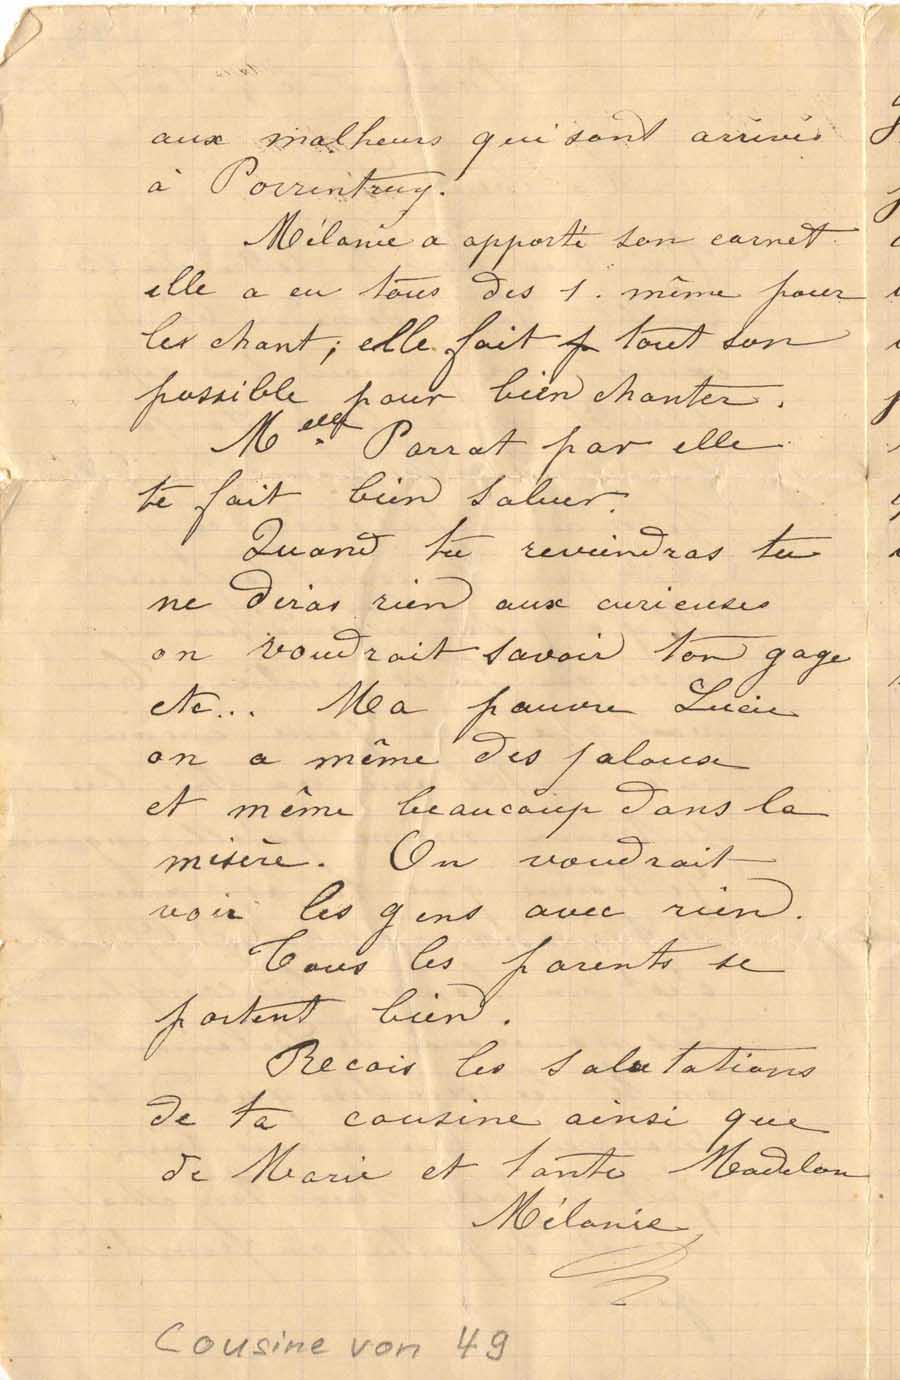 aux malheurs qui sont arrivés
à Porrentruy.
Mélanie a apporté son carnet
elle a eu tous des 1. même pour
les chant; elle fait tout son
possible pour bien chanter.
Melle Parrat par elle
te fait bien saluer.
Quand tu reviendras tu
ne diras rien aux curieuses
on voudrait savoir ton gage
etc... Ma pauvre Lucie
on a même des jaloux
et même beaucoup dans la
misère. On voudrait
voir les gens avec rien.
Tous les parents se
portent bien.
Recois les salutations
de ta cousine ainsi que
de Marie et tante Madelon
Mélanie
Cousine von 49